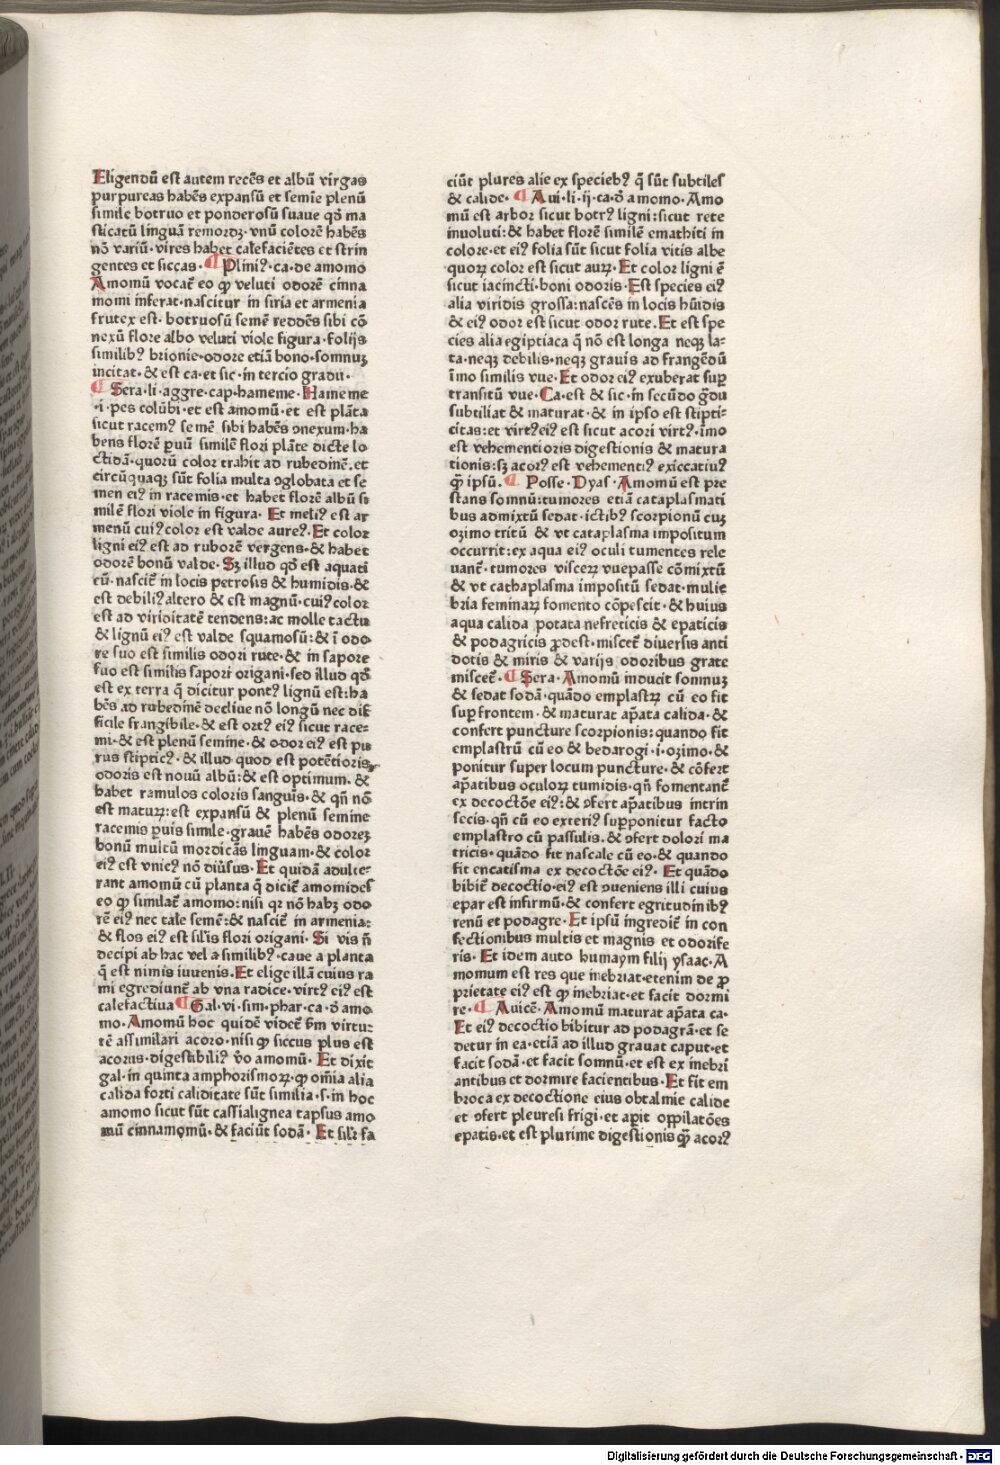 Eligendū est autem recēs et albū virgas
purpureas habēs expansū et semie plenū
simile botruo et ponderosū suaue qđ ma
sticatū linguā remordꝫ·vnū colorē habēs
nō variū·vires habet calefaciētes et strin
gentes et siccas· ¶ Pliniꝰ·ca·de amomo
Amomū vocat̄ eo ꝙ veluti odorē cinna
momi inferat·nascitur in siria et armenia
frutex est· botruosū semē reddēs sibi cō
nexū flore albo veluti viole figura·folijs
similibꝰ brionie·odore etiā bono·somnuꝫ
incitat·& est ca·et sic·in tercio gradu·
¶ Sera·li·aggre·cap·hameme·Hameme
·i·pes colūbi·et est amomū·et est plāta
sicut racemꝰ semē sibi habēs ꝯnexum·ha
bens florē ꝑuū similē flori plāte dicte lo
ctidā·quorū color trahit ad rubedinē·et
circūquaqꝫ sūt folia multa ꝯglobata et se
men eiꝰ in racemis·et habet florē albū si
milē flori viole in figura· Et meliꝰ est ar
menū cuiꝰ color est valde aureꝰ·Et color
ligni eiꝰ est ad ruborē vergens·& habet
odorē bonū valde·Sꝫ illud qđ est aquati
cū·nascit̄ in locis petrosis & humidis·&
est debiliꝰ altero & est magnū·cuiꝰ color
est ad viriditatē tendens:ac molle tactu
& lignū eiꝰ est valde squamosū:& ī odo
re suo est similis odori rute·& in sapore
suo est similis sapori origani·sed illud qđ
est ex terra q̄ dicitur pontꝰ lignū est:ha
bēs ad rubedinē decliue nō longū nec dif
ficile frangibile·& est ortꝰ eiꝰ sicut race-
mi·& est plenū semine·& odor eiꝰ est pu
rus stipticꝰ·& illud quod est potētioris
odoris est nouū albū:& est optimum· &
habet ramulos coloris sanguīs·& qn̄ nō
est maturꝫ:est expansū & plenū semine
racemis ꝑuis simile·grauē habēs odoreꝫ
bonū multū mordicās linguam·& color
eiꝰ est vnicꝰ nō diūsus·Et quidā adulte-
rant amomū cū planta q̄ dicit̄ amomides
eo ꝙ similat̄ amomo:nisi qꝛ nō habꝫ odo
rē eiꝰ nec tale semē:& nascit̄ in armenia:
& flos eiꝰ est sil̄is flori origani· Si vis n̄
decipi ab hac vel a similibꝰ·caue a planta
q̄ est nimis iuuenis·Et elige illā cuius ra
mi egrediunt̄ ab vna radice·virtꝰ eiꝰ est
calefactiua ¶ Gal·vi·sim·phar·ca·đ amo
mo·Amomū hoc quidē videt̄ hm̄ virtu:
tē assimilari acoro·nisi ꝙ siccus plus est
acorus·digestibiliꝰ v̄o amomū· Et dixit
gal·in quinta amphorismoꝝ·ꝙ om̄ia alia
calida forti caliditate sūt similia·s·in hoc
amomo sicut sūt cassialignea tapsus amo
mū cinnamomū·& faciūt sodā· Et sil̄r fa
ciūt plures alie ex speciebꝰ q̄ sūt subtiles
& calide· ¶ Aui·li·ij·ca·đ amomo·Amo
mū est arbor sicut botrꝰ ligni:sicut rete
inuoluti:& habet florē similē emathiti in
colore·et eiꝰ folia sūt sicut folia vitis albe
quoꝝ color est sicut auꝝ·Et color ligni ē
sicut iacincti·boni odoris·Est species eiꝰ
alia viridis grossa:nascēs in locis hūidis
& eiꝰ odor est sicut odor rute·Et est spe
cies alia egiptiaca q̄ nō est longa neqꝫ la-
ta·neqꝫ debilis·neqꝫ grauis ad frangēdū
īmo similis vue·Et odor eiꝰ exuberat suꝑ
transitū vue·Ca·est & sic·in secūdo ḡdu
subtiliat & maturat·& in ipso est stipti-
citas:et virtꝰ eiꝰ est sicut acori virtꝰ·īmo
est vehementioris digestionis & matura
tionis:sꝫ acorꝰ est vehementiꝰ exiccatiuꝰ
ꝙ̄ ipsū· ¶ Posse·Dyas·Amomū est pre
stans somnū:tumores etiā cataplasmati
bus admixtū sedat·ictibꝰ scorpionū cuꝫ
ozimo tritū & vt cataplasma impositum
occurrit:ex aqua eiꝰ oculi tumentes rele
uant̄·tumores visceꝝ vuepasse cōmixtū
& vt cathaplasma impositū sedat·mulie
bria feminaꝝ fomento cōpescit·& huius
aqua calida potata nefreticis & epaticis
& podagricis ꝓdest·miscet̄ diuersis anti
dotis & miris & varijs odoribus grate
miscet̄· ¶ Sera·Amomū inducit somnuꝫ
& sedat sodā·quādo emplastꝝ cū eo fit
suꝑ frontem·& maturat aꝑata calida·&
confert puncture scorpionis:quando fit
emplastrū cū eo & bedarogi·i·ozimo·&
ponitur super locum puncture·& cōfert
aꝑatibus oculoꝝ tumidis·qn̄ fomentant̄
ex decoctōe eiꝰ:& ꝯfert aꝑatibus intrin
secis·qn̄ cū eo exteriꝰ suꝑponitur facto
emplastro cū passulis·& ꝯfert dolori ma
tricis·quādo fit nascale cū eo·& quando
fit encatisma ex decoctōe eiꝰ· Et quādo
bibit̄ decoctio·eiꝰ est ꝯueniens illi cuius
epar est infirmū·& confert egritudinibꝰ
renū et podagre·Et ipsū ingredit̄ in con
fectionibus multis et magnis et odorife
ris· Et idem auto humaym filij ysaac·A
momum est res que inebriat·etenim de ꝓ
prietate eiꝰ est ꝙ inebriat·et facit dormi
re· ¶ Auicē·Amomū maturat aꝑata ca·
Et eiꝰ decoctio bibitur ad podagrā·et se
detur in ea·etiā ad illud grauat caput·et
facit sodā·et facit somnū·et est ex inebri
antibus et dormire facientibus·Et fit em
broca ex decoctione eius obtalmie calide
et ꝯfert pleuresi frigi·et aꝑit oꝑpilatōes
epatis·et est plurime digestionis ꝙ̄ acorꝰ
Digitalisierung gefördert durch die Deutsche Forschungsgemeinschaft - DFG